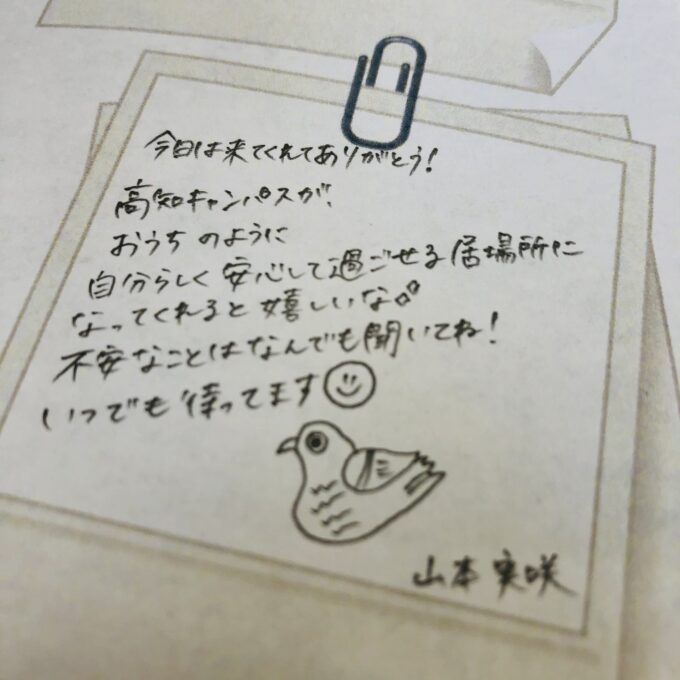 今日は来てくれてありがとう!
高知キャンパスが、
おうちのように
自分らしく安心して過ごせる居場所に
なってくれると嬉しいな
不安なことはなんでも聞いてね!
いつでも待ってます
山本実咲